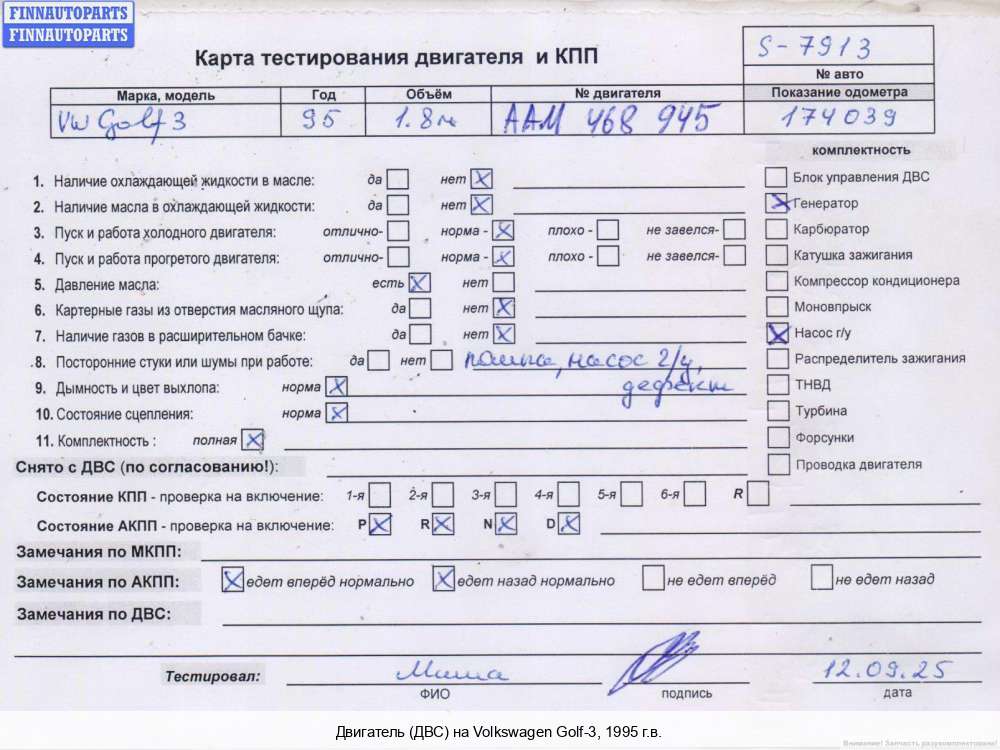 FINNAUTOPARTS
FINNAUTOPARTS
Карта тестирования двигателя и КПП
S-7913
№ авто
Марка, модель Год Объём № двигателя Показание одометра
VW Golf 3 95 1.8 AAM 468 945 174039
комплектность
1. Наличие охлаждающей жидкости в масле: да нет X
Блок управления ДВС
2. Наличие масла в охлаждающей жидкости: да нет X
X Генератор
3. Пуск и работа холодного двигателя: отлично- норма - X плохо - не завелся-
Карбюратор
4. Пуск и работа прогретого двигателя: отлично- норма - X плохо - не завелся-
Катушка зажигания
5. Давление масла: есть X нет
Компрессор кондиционера
6. Картерные газы из отверстия масляного щупа: да нет X
Моновпрыск
7. Наличие газов в расширительном бачке: да нет X
X Насос г/у
8. Посторонние стуки или шумы при работе: да нет помпа, насос г/у,
Распределитель зажигания
9. Дымность и цвет выхлопа: норма X дефект
ТНВД
10. Состояние сцепления: норма X
Турбина
11. Комплектность : полная X
Форсунки
Снято с ДВС (по согласованию!):
Проводка двигателя
Состояние КПП - проверка на включение: 1-я 2-я 3-я 4-я 5-я 6-я R
Состояние АКПП - проверка на включение: P X R X N X D X
Замечания по МКПП:
Замечания по АКПП: X едет вперёд нормально X едет назад нормально не едет вперёд не едет назад
Замечания по ДВС:
Тестировал: Миша 12.09.25
ФИО подпись дата
Двигатель (ДВС) на Volkswagen Golf-3, 1995 г.в.
Внимание! Запчасть разукомплектована!